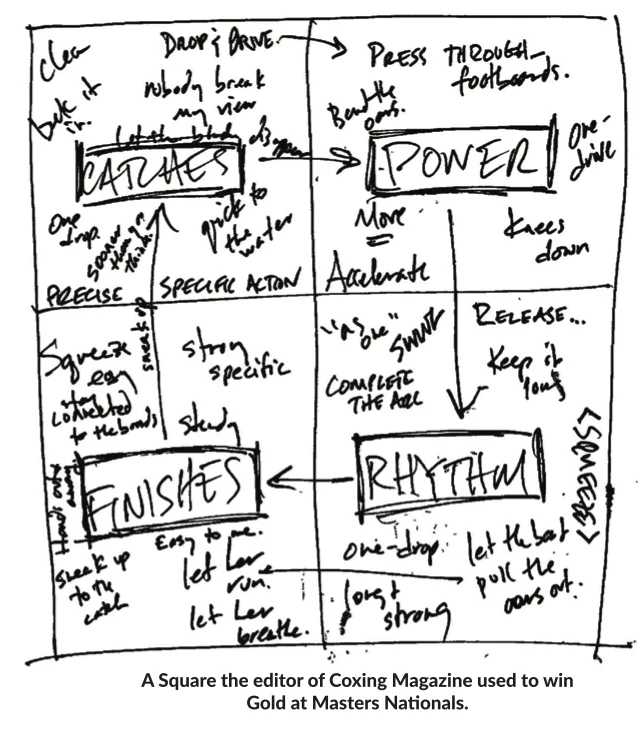 clean
DROP & DRIVE.
nobody break
my view
let the blade
CATCHES
One
drop.
sooner
than you
think
quick to
the
water
PRECISE
SPECIFIC ACTION
PRESS THROUGH
footboards.
Bend the
oars.
POWER
One-
drive
More
Knees
down
Accelerate
Squeeze
easy
stay
connected
to the
strong
specific
steady
sneak up
FINISHES
Hands
away
sneak up
to the
catch
Easy to me.
let her
run.
let her
breathe.
"as
one"
swing
COMPLETE
THE ARC
RELEASE...
Keep it
long
RHYTHM
<SQUEEZE>
one-drop.
long &
strong
let the boat
pull the
oars out.
A Square the editor of Coxing Magazine used to win
Gold at Masters Nationals.